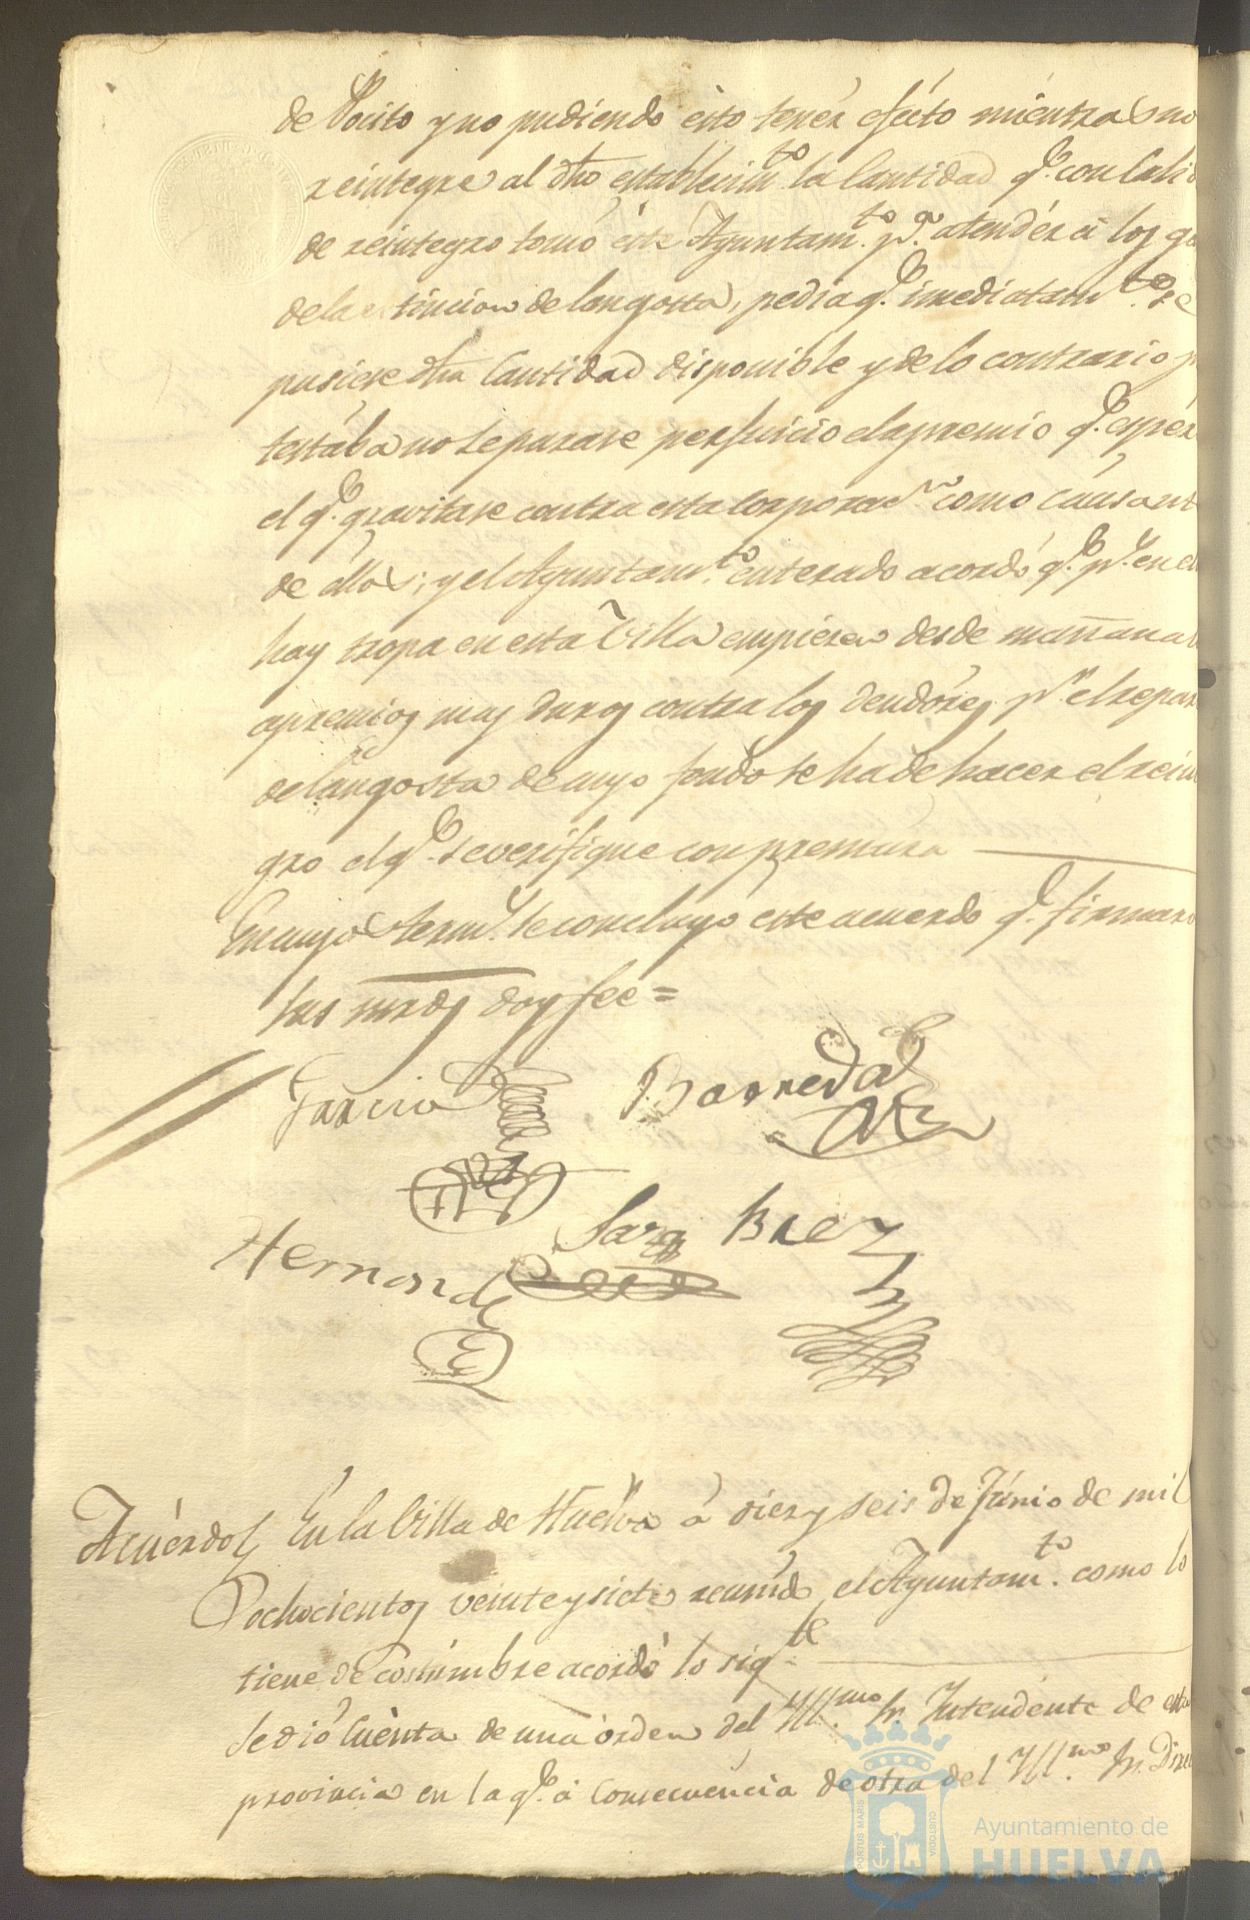 de Pocito y no pudiendo ésto tenér efécto mientras no
reintegre al dho establecimto la Cantidad qe. con calid
de reintegro tomó éste Ayuntamto. pa. atendér á los ga
de la estincion de langosta, pedia qe. inmediatamte se
pusiese dha Cantidad disponible y de lo contrario p
testába no se parase perjuicio el apremio qe. espér
el qe. gravitase contra esta Corporacn. como causant
de éllos; y el Ayuntamto. enterado acordó qe. pr. en el
hay tropa en esta Villa empiézen desde mañana
apremios muy duros contra los deudóres pr. el repar
de langosta de cuyo fondo se ha de hacer el rein
gro el qe. se verifique con premura
En cuyos térms. se concluyó este acuerdo qe. firmaro
sus mrds doy fee =
Garcia Barreda
Hernande Sara Baez
Acuérdo En la Villa de Huelva á diez y seis de Júnio de mil
ochocientos veinte y siete reunido el Ayuntamto. como lo
tiene de costúmbre acordó lo sigte
Se dió Cuénta de una órden del Yllmo. Sr. Intendénte de esta
provincia en la qe. á Consecuéncia de otra del Yllmo. Sr. Direc
PORTUS MARIS
CUSTODIA
Ayuntamiento de
HUELVA